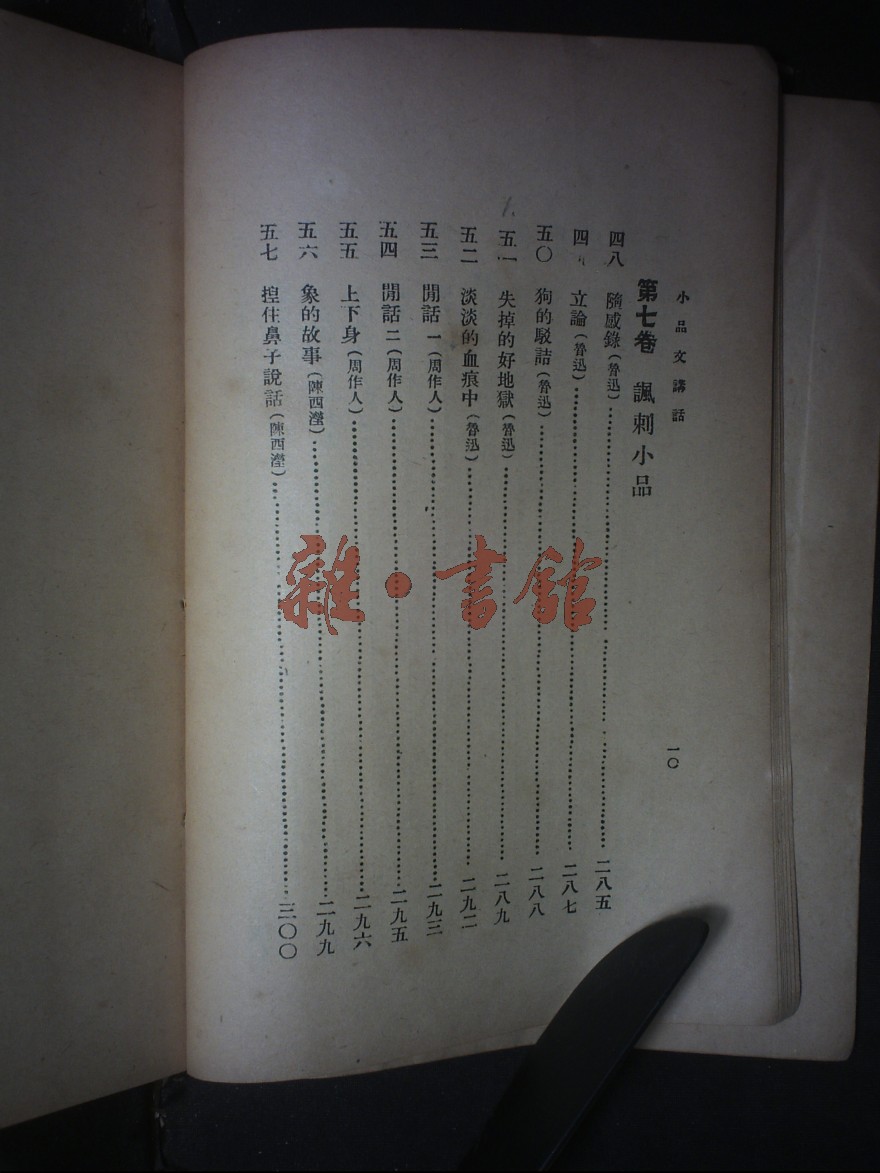 小品文講話
一〇
第七卷 諷刺小品
四八 隨感錄(魯迅)……二八五
四九 立論(魯迅)……二八七
五〇 狗的駁詰(魯迅)……二八八
五一 失掉的好地獄(魯迅)……二八九
五二 淡淡的血痕中(魯迅)……二九二
五三 閒話一(周作人)……二九三
五四 閒話二(周作人)……二九五
五五 上下身(周作人)……二九六
五六 象的故事(陳西瀅)……二九九
五七 揑住鼻子說話(陳西瀅)……三〇〇
雜·書館